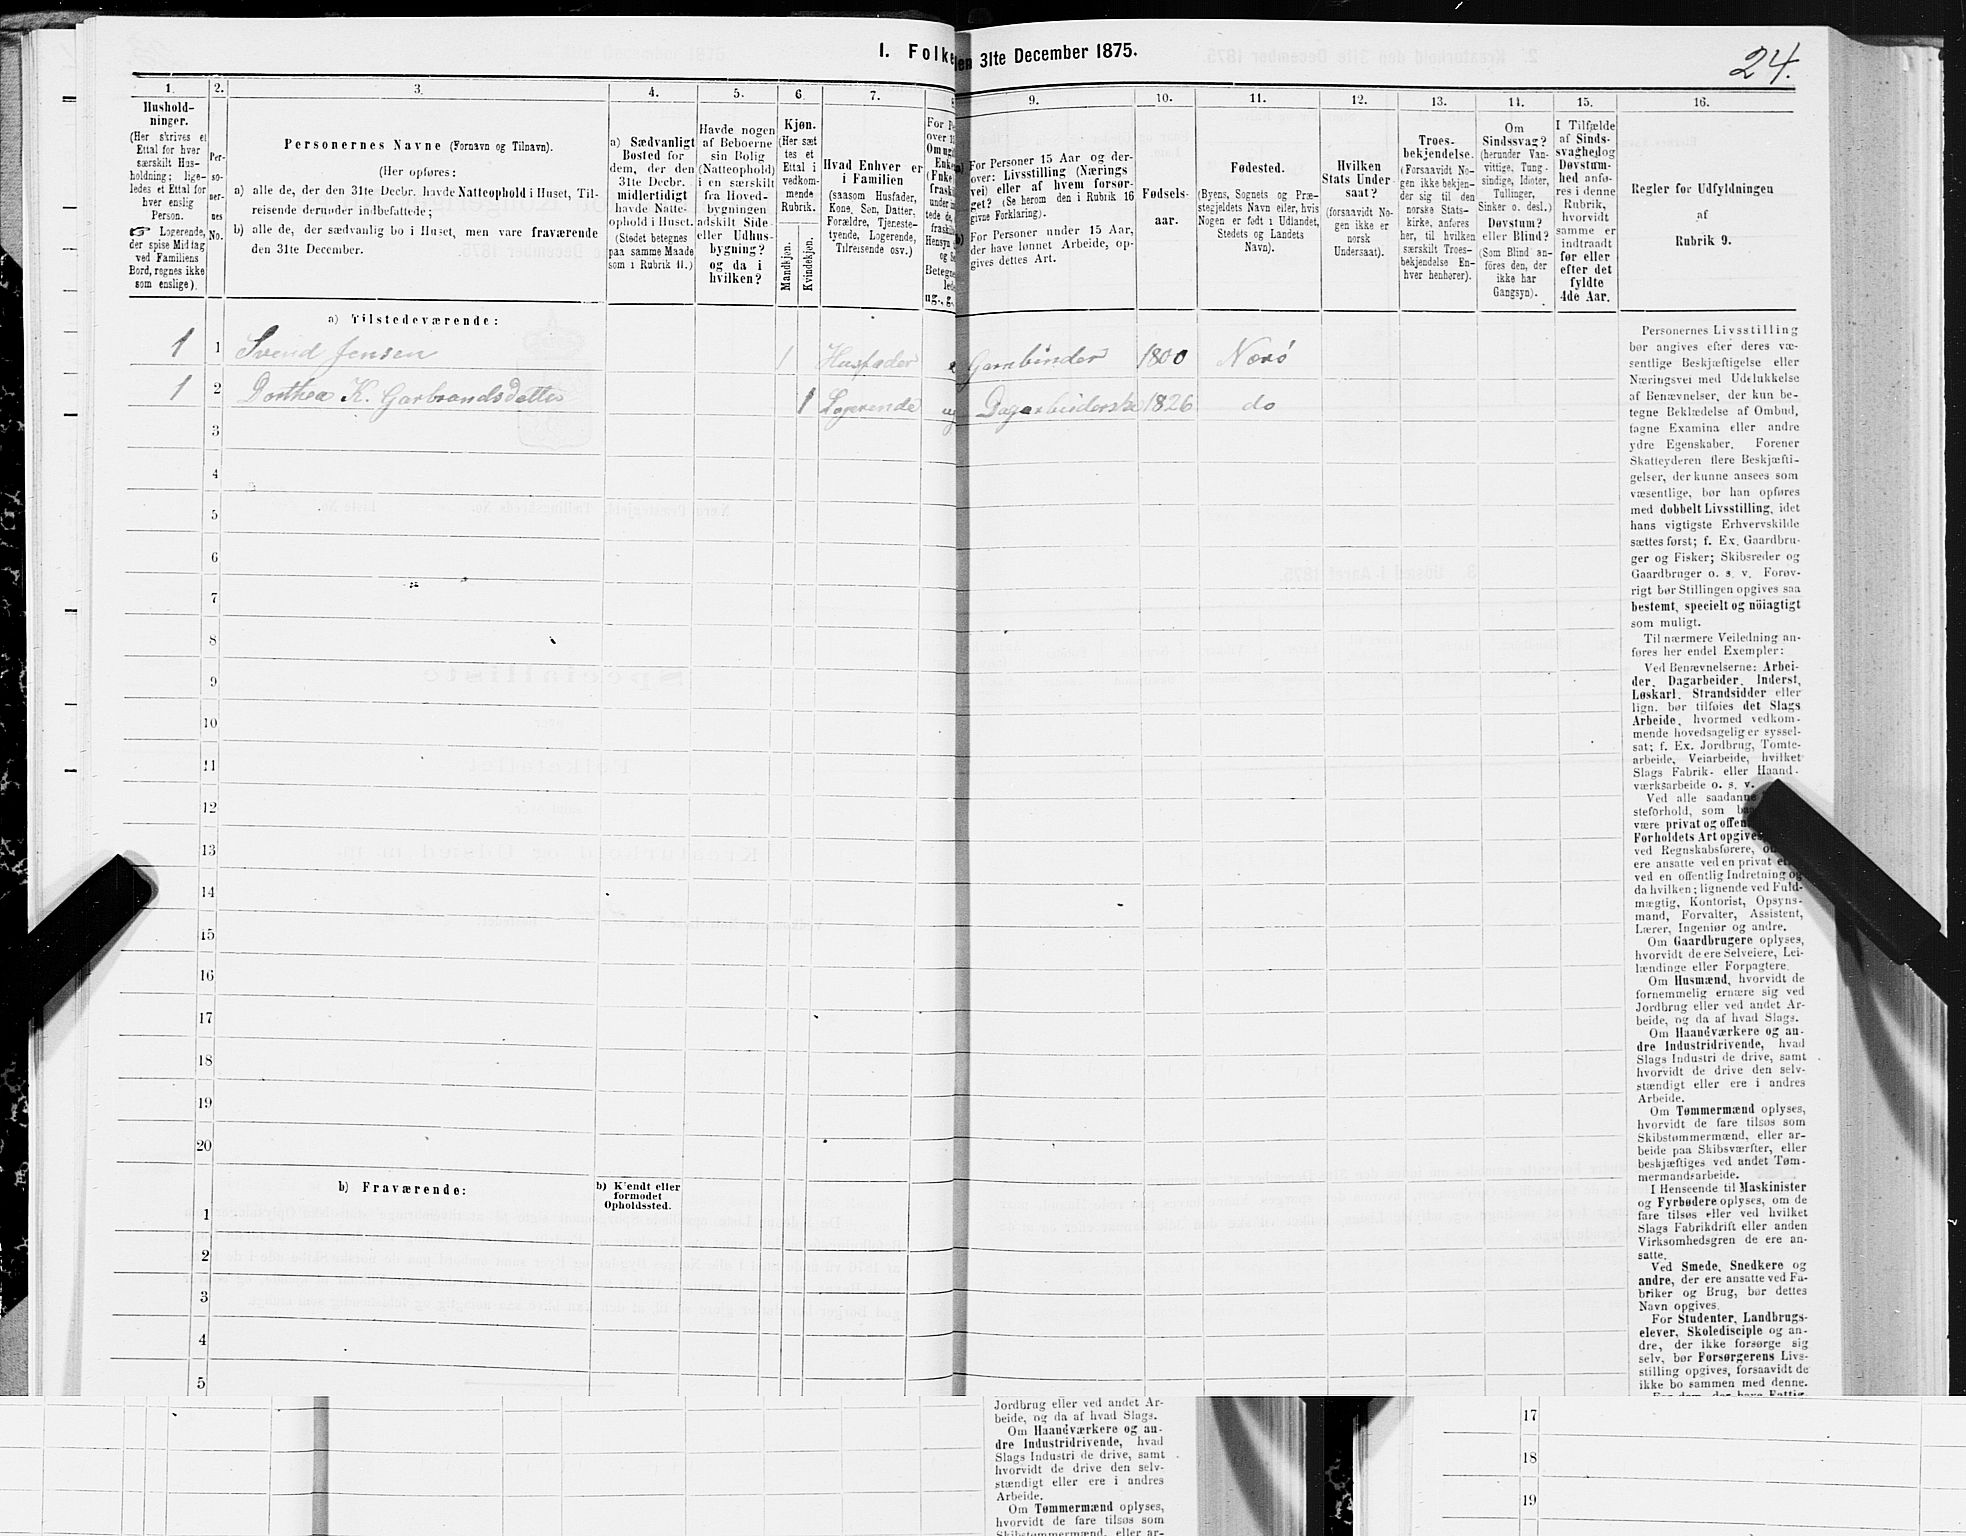 I. Folke
den 31te December 1875.
24.
1.
Hushold-
ninger.
(Her skrives et
Ettal for hver
særskilt Hus-
holdning; lige-
ledes et Ettal for
hver enslig
Person.
☞ Logerende,
der spise Middag
ved Familiens
Bord, regnes ikke
som enslige).
2.
Per-
so-
ner-
nes
No.
3.
Personernes Navne (Fornavn og Tilnavn).
(Her opføres:
a) alle de, der den 31te Decbr. havde Natteophold i Huset, Til-
reisende derunder indbefattede;
b) alle de, der sædvanlig bo i Huset, men vare fraværende
den 31te December.
4.
a) Sædvanligt
Bosted for
dem, der den
31te Decbr.
midlertidigt
havde Natte-
ophold i Huset.
(Stedet betegnes
paa samme Maade
som i Rubrik 11.)
5.
Havde nogen
af Beboerne
sin Bolig
(Natteophold)
i en særskilt
fra Hoved-
bygningen
adskilt Side-
eller Udhus-
bygning?
og da i
hvilken?
6.
Kjøn.
(Her sæt
tes et
Ettal i
vedkom-
mende
Rubrik.
Mandkjøn.
Kvindekjøn.
7.
Hvad Enhver er
i Familien
(saasom Husfader,
Kone, Søn, Datter,
Forældre, Tjeneste-
tyende, Logerende,
Tilreisende osv.)
9.
For Personer 15 Aar og der-
over: Livsstilling (Nærings
vei) eller af hvem forsør-
get? (Se herom den i Rubrik 16
givne Forklaring).
For Personer under 15 Aar,
der have lønnet Arbeide, op-
gives dettes Art.
10.
Fødsels-
aar.
11.
Fødested.
(Byens, Sognets og Præ-
stegjeldets Navn eller, hvis
Nogen er født i Udlandet,
Stedets og Landets
Navn).
12.
Hvilken
Stats Under
saat?
(forsaavidt No-
gen ikke er
norsk
Undersaat).
13.
Troes-
bekjendelse.
(Forsaavidt No-
gen ikke bekjen-
der sig til den
norske Stats-
kirke, anføres
her, til hvilken
særskilt Troes-
bekjendelse En-
hver henhører).
14.
Om
Sindssvag?
(herunder Van-
vittige, Tung-
sindige, Idioter,
Tullinger,
Sinker o. desl.)
Døvstum?
eller Blind?
(Som Blind an-
føres den, der
ikke har
Gangsyn).
15.
I Tilfælde
af Sinds-
svaghed og
Døvstum-
hed anfø-
res i denne
Rubrik,
hvorvidt
samme er
indtraadt
før eller
efter det
fyldte
4de Aar.
16.
Regler for Udfyldningen
af
Rubrik 9.
a) Tilstedeværende:
1 1 Svend Jensen 1 Husfader e Garnbinder 1800 Nærø
1 2 Dorthea K. Garbrandsdetter 1 Logerende ug Dagarbeiderske 1826 do
3
4
5
6
7
8
9
10
11
12
13
14
15
16
17
18
19
20
b) Fraværende:
b) Kjendt eller
formodet
Opholdssted.
1
2
3
4
5
Personernes Livsstilling
bør angives efter deres væ-
sentlige Beskjæftigelse eller
Næringsvei med Udelukkelse
af Benævnelser, der kun be-
tegne Beklædelse af Ombud,
tagne Examina eller andre
ydre Egenskaber. Forener
Skatteyderen flere Beskjæfti-
gelser, der kunne ansees som
væsentlige, bør han opføres
med dobbelt Livsstilling, idet
hans vigtigste Erhvervskilde
sættes først; f. Ex. Gaardbru-
ger og Fisker; Skibsreder og
Gaardbruger o. s. v. Forøv-
rigt bør Stillingen opgives saa
bestemt, specielt og nöiagtigt
som muligt.
Til nærmere Veiledning an-
føres her endel Exempler:
Ved Benævnelserne: Arbei-
der, Dagarbeider, Inderst,
Løskarl, Strandsidder eller
lign. bør tilføies det Slags
Arbeide, hvormed vedkom-
mende hovedsagelig er syssel-
sat; f. Ex. Jordbrug, Tomte-
arbeide, Veiarbeide, hvilket
Slags Fabrik- eller Haand-
værksarbeide o. s. v.
Ved alle saadanne
steforhold, som
være privat og
Forholdets Art opgives
ved Regnskabsførere,
ere ansatte ved en privat
ved en offentlig Indretning og
da hvilken; lignende ved Fuld-
mægtig, Kontorist, Opsyns-
mand, Forvalter, Assistent,
Lærer, Ingeniør og andre.
Om Gaardbrugere oplyses,
hvorvidt de ere Selveiere, Lei-
lændinge eller Forpagtere.
Om Husmænd, hvorvidt de
fornemmelig ernære sig ved
Jordbrug eller ved andet Ar-
beide, og da af hvad Slags.
Om Haandværkere og an-
dre Industridrivende, hvad
Slags Industri de drive, samt
hvorvidt de drive den selv-
stændigt eller ere i andres
Arbeide.
Om Tømmermænd oplyses,
hvorvidt de fare tilsøs som
Skibstømmermænd, eller ar-
beide paa Skibsværfter, eller
beskjæftiges ved andet Tøm-
mermandsarbeide.
I Henseende til Maskinister
og Fyrbødere oplyses, om de
fare tilsøs eller ved hvilket
Slags Fabrikdrift eller anden
Virksomhedsgren de ere an-
satte.
Ved Smede, Snedkere og
andre, der ere ansatte ved Fa-
briker og Brug, bør dettes
Navn opgives.
For Studenter, Landbrugs-
elever, Skoledisciple og an-
dre, der ikke forsørge sig
selv, bør Forsørgerens Livs-
stilling opgives, forsaavidt de
ikke bo sammen med denne.
Jordbrug eller ved andet Ar-
beide, og da af hvad Slags.
Om Haandværkere og an-
dre Industridrivende, hvad
Slags Industri de drive, samt
hvorvidt de drive den selv-
stændigt eller ere i andres
Arbeide.
Om Tømmermænd oplyses,
hvorvidt de fare tilsøs som
Skibstømmermænd, eller ar-
17
18
19